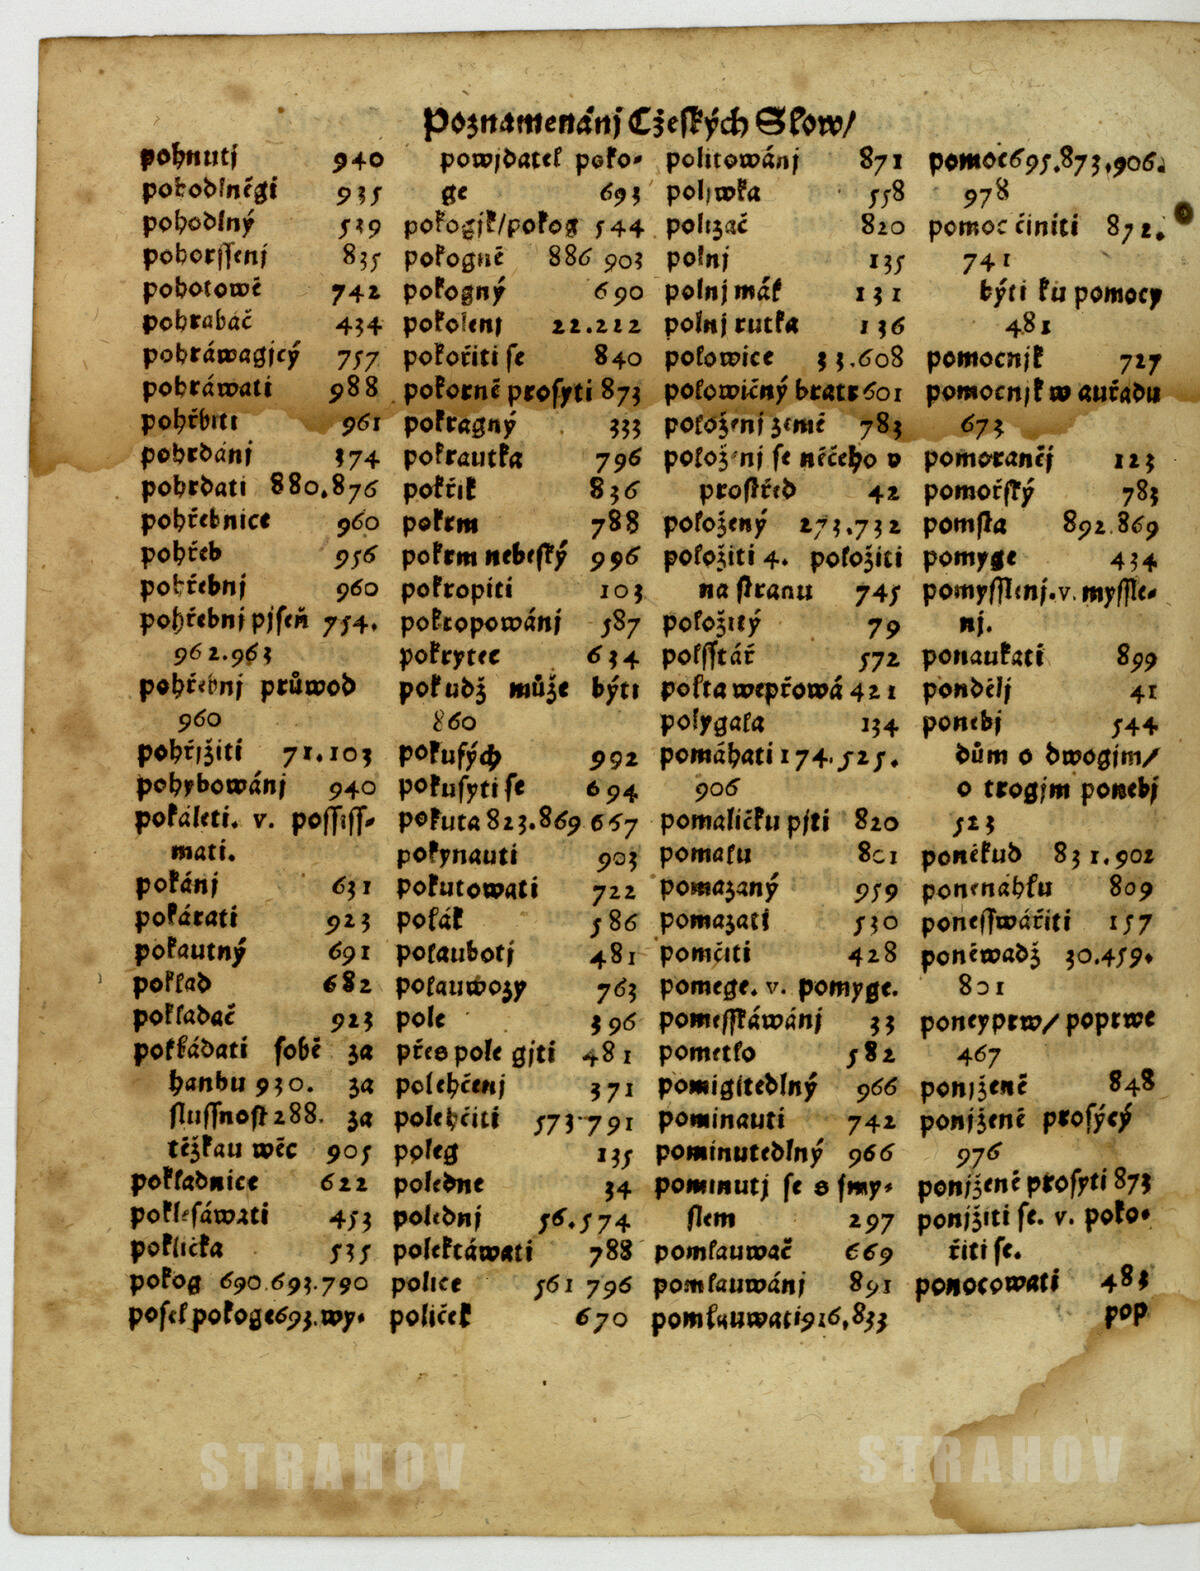 Poznamenánj Cžeſkých Slow/
pohnutj 940
pohodlněgi 935
pohodlný 539
pohorſſenj 835
pohotowě 742
pohrabáč 434
pohráwagjcý 757
pohráwati 988
pohřbiti 961
pohrdánj 374
pohrdati 880.876
pohřebnice 960
pohřeb 956
pohřebnj 960
pohřebnj pjſeň 754.
962.963
pohřebnj průwod
960
pohřjžiti 71.103
pohybowánj 940
pokáleti. v. poſſiſſ-
mati.
pokánj 631
pokárati 923
pokautný 691
poklad 682
pokladač 923
pokládati ſobě za
hanbu 930. za
ſluſſnoſt 288. za
těžkau wěc 905
pokladnice 622
pokleſáwati 453
poklička 535
pokog 690.693.790
poſel pokoge 693. wy-
powjdatel poko-
ge 693
pokogjk/pokog 544
pokogně 886 903
pokogný 690
pokolenj 22.222
pokořiti ſe 840
pokorně proſyti 873
pokragný 333
pokrautka 796
pokřik 836
pokrm 788
pokrm nebeſký 996
pokropiti 103
pokropowánj 587
pokrytec 634
pokudž může býti
860
pokuſých 992
pokuſyti ſe 694
pokuta 823.869 667
pokynauti 903
pokutowati 722
polák 586
polaubotj 481
polauwozy 763
pole 396
přes pole gjti 481
polehčenj 371
polehčiti 573.791
poleg 135
poledne 34
polednj 56.574
polektáwati 788
police 561 796
poliček 670
politowánj 871
poljwka 558
polizač 820
polnj 135
polnj mák 131
polnj rutka 136
polowice 33.608
polowičný bratr 601
položenj země 783
položenj ſe něčeho v
proſtřed 42
položený 273.732
položiti 4. položiti
na ſtranu 745
položitý 79
polſſtář 572
polta wepřowá 421
polygala 134
pomáhati 174.525.
906
pomaličku pjti 820
pomalu 801
pomazaný 959
pomazati 530
pomčiti 428
pomege. v. pomyge.
pomeſſkáwánj 33
pometlo 582
pomigitedlný 966
pominauti 742
pominutedlný 966
pominutj ſe s ſmy-
ſlem 297
pomlauwač 669
pomlauwánj 891
pomlauwati 916,833
pomoc 695.873,906.
978
pomoc činiti 872.
741
býti ku pomocy
481
pomocnjk 727
pomocnjk w auřadu
673
pomorančj 123
pomořſký 783
pomſta 892.869
pomyge 434
pomyſſlenj. v. myſſle-
nj.
ponaukati 899
pondělj 41
ponebj 544
dům o dwogjm/
o trogjm ponebj
523
poněkud 831.902
ponenáhlu 809
poneſſwářiti 157
poněwadž 30.459.
801
poneyprw/ poprwe
467
ponjženě 848
ponjženě proſýcý
976
ponjženě proſyti 873
ponjžiti ſe. v. poko-
řiti ſe.
ponocowati 483
pop
STRAHOV STRAHOV